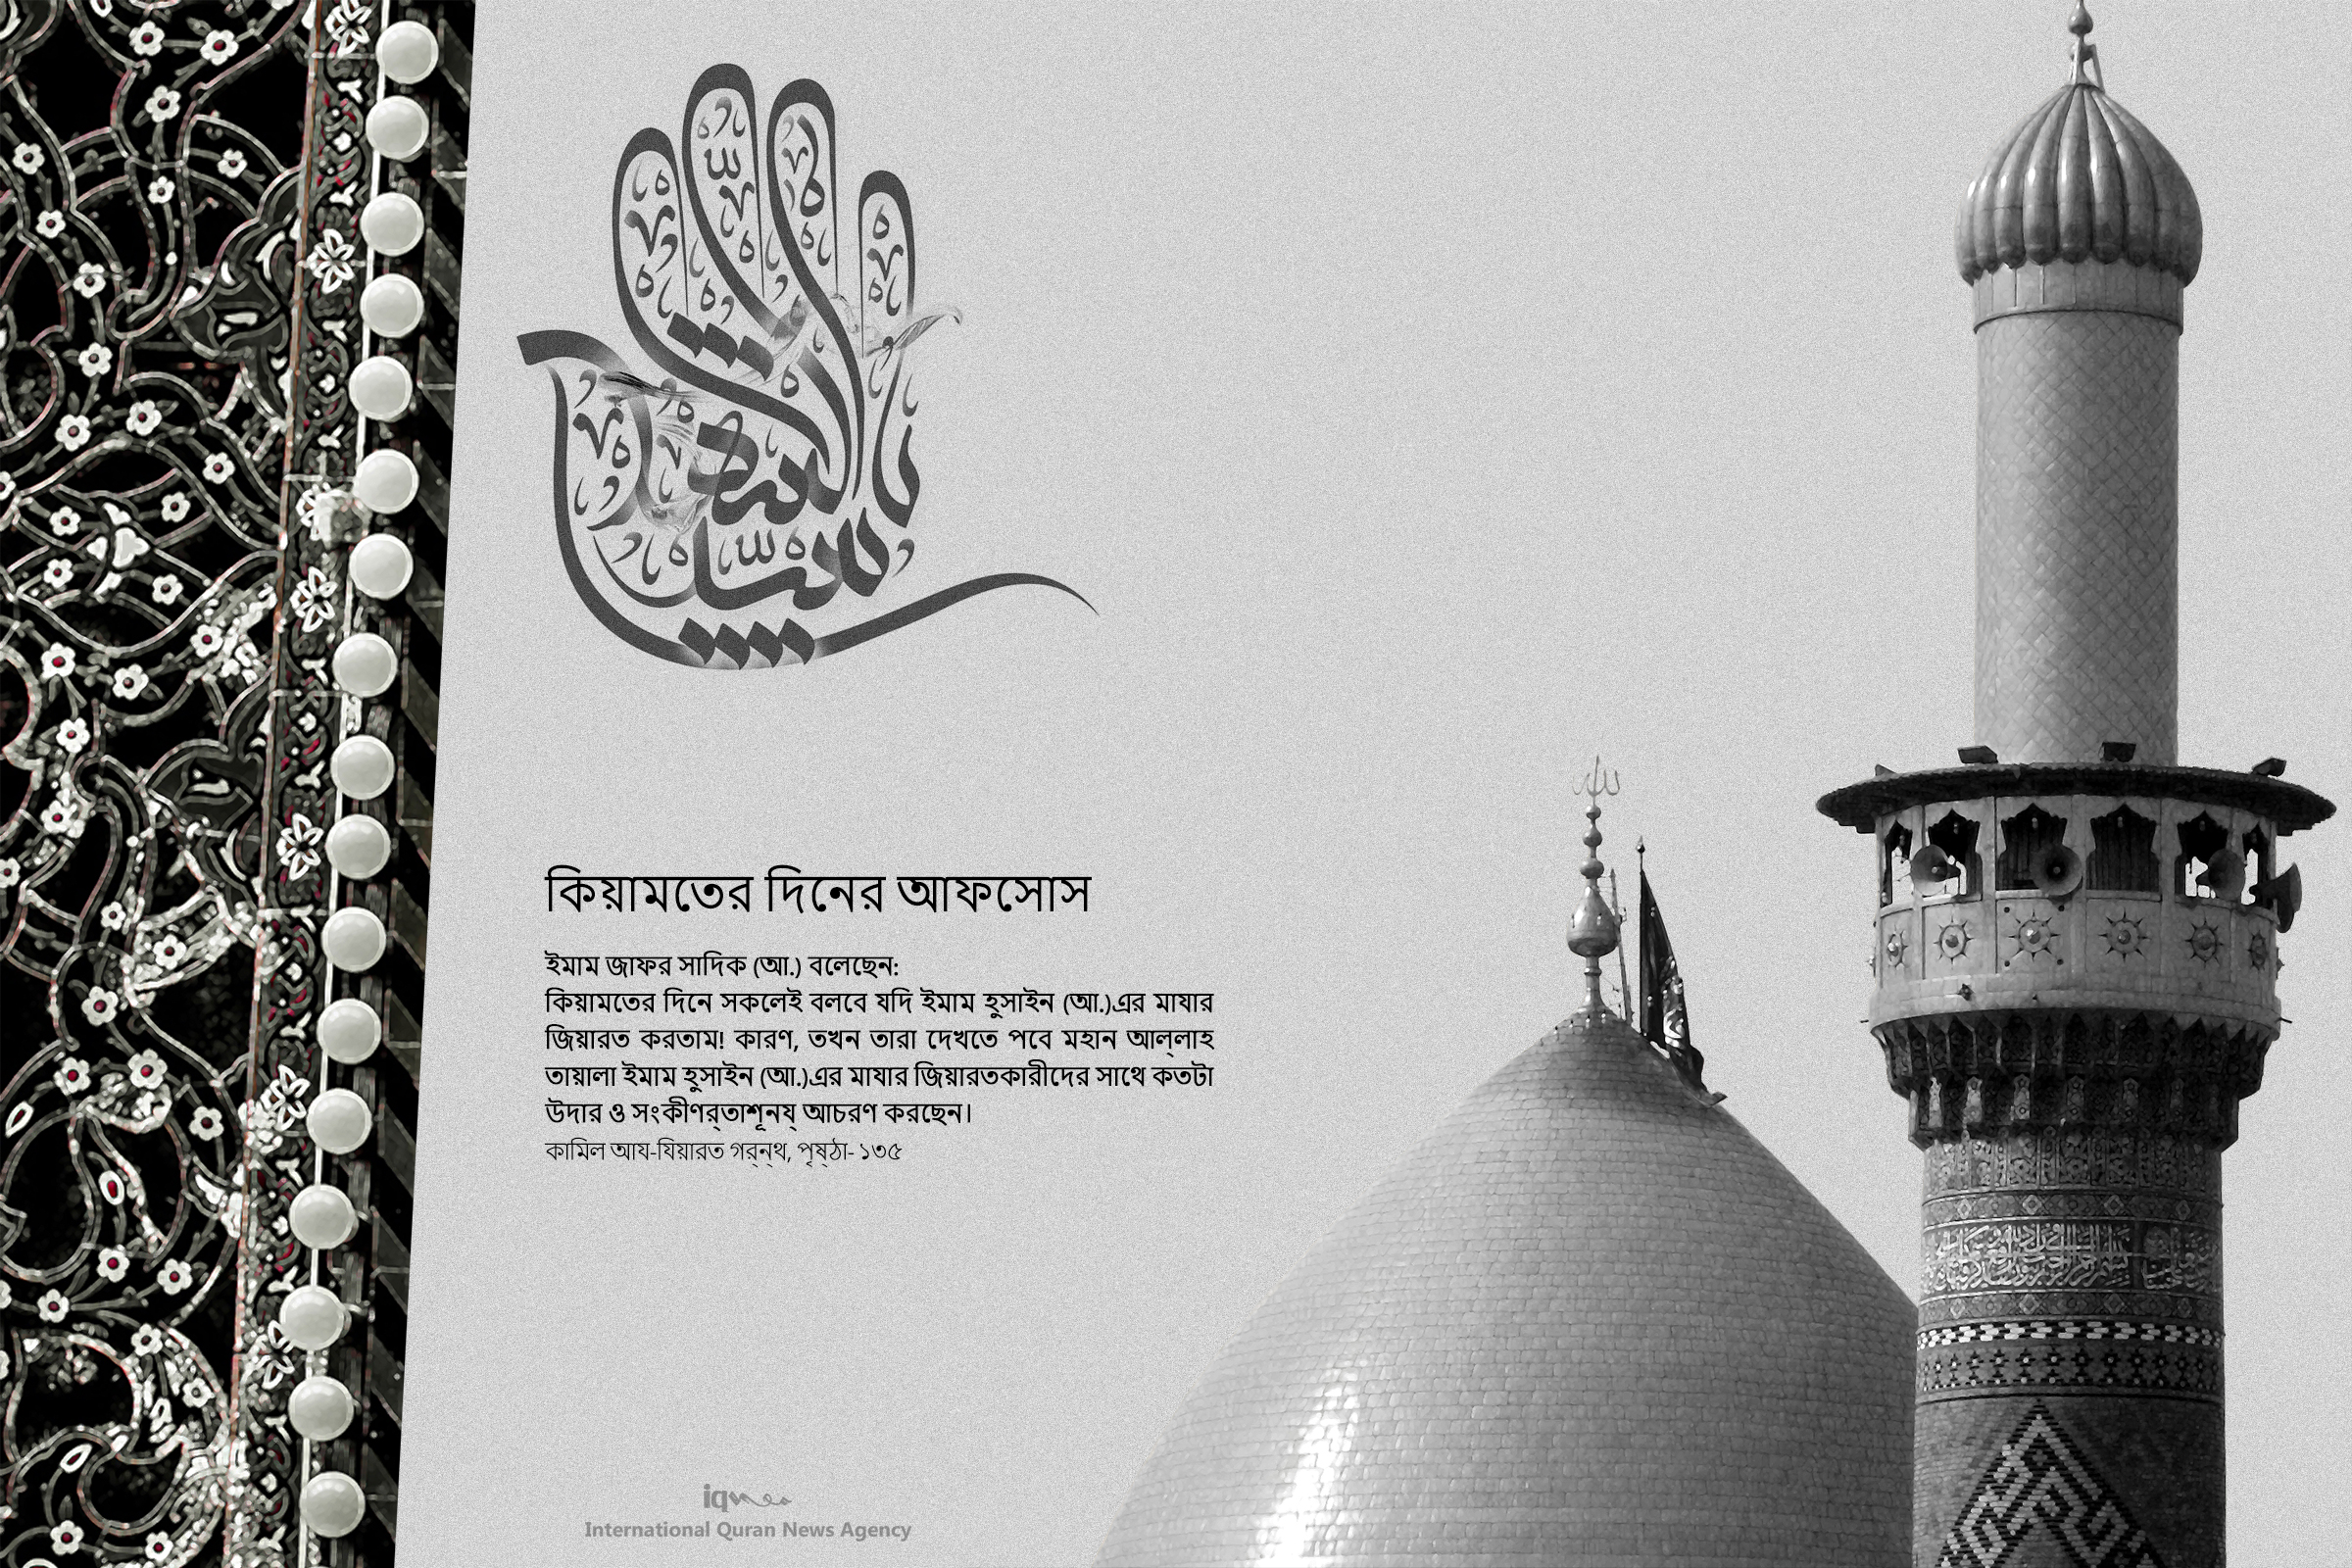 يا سيد الشهداء
কিয়ামতের দিনের আফসোস
ইমাম জাফর সাদিক (আ.) বলেছেন:
কিয়ামতের দিনে সকলেই বলবে যদি ইমাম হুসাইন (আ.)এর মাযার
জিয়ারত করতাম! কারণ, তখন তারা দেখতে পবে মহান আল্লাহ
তায়ালা ইমাম হুসাইন (আ.)এর মাযার জিয়ারতকারীদের সাথে কতটা
উদার ও সংকীণর্তাশূনয্ আচরণ করছেন।
কামিল আয-যিয়ারত গর্ন্থ, পৃষ্ঠা- ১৩৫
iqna
International Quran News Agency